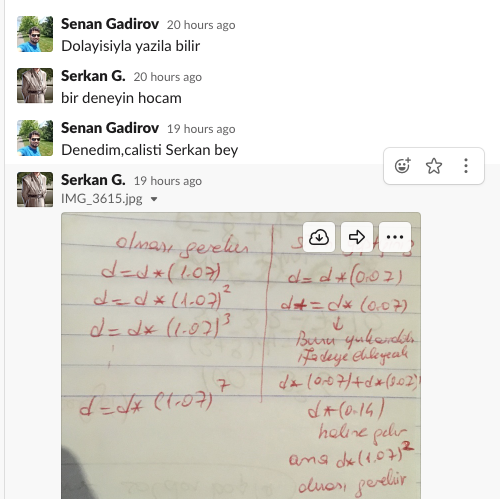 Senan Gadirov 20 hours ago
Dolayisiyla yazila bilir
Serkan G. 20 hours ago
bir deneyin hocam
Senan Gadirov 19 hours ago
Denedim,calisti Serkan bey
Serkan G. 19 hours ago
IMG_3615.jpg
olması gereken
d=d*(1.07)
d=d*(1.07)²
d=d*(1.07)³
d=d*(1.07)⁷
d=d*(0.07)
d+=d*(0.07)
↓
Bunu yukarıdaki
ifadeye ekleyecek
d*(0.07)+d*(0.07)
d*(0.14)
haline gelir
ama d*(1.07)²
olması gerekir